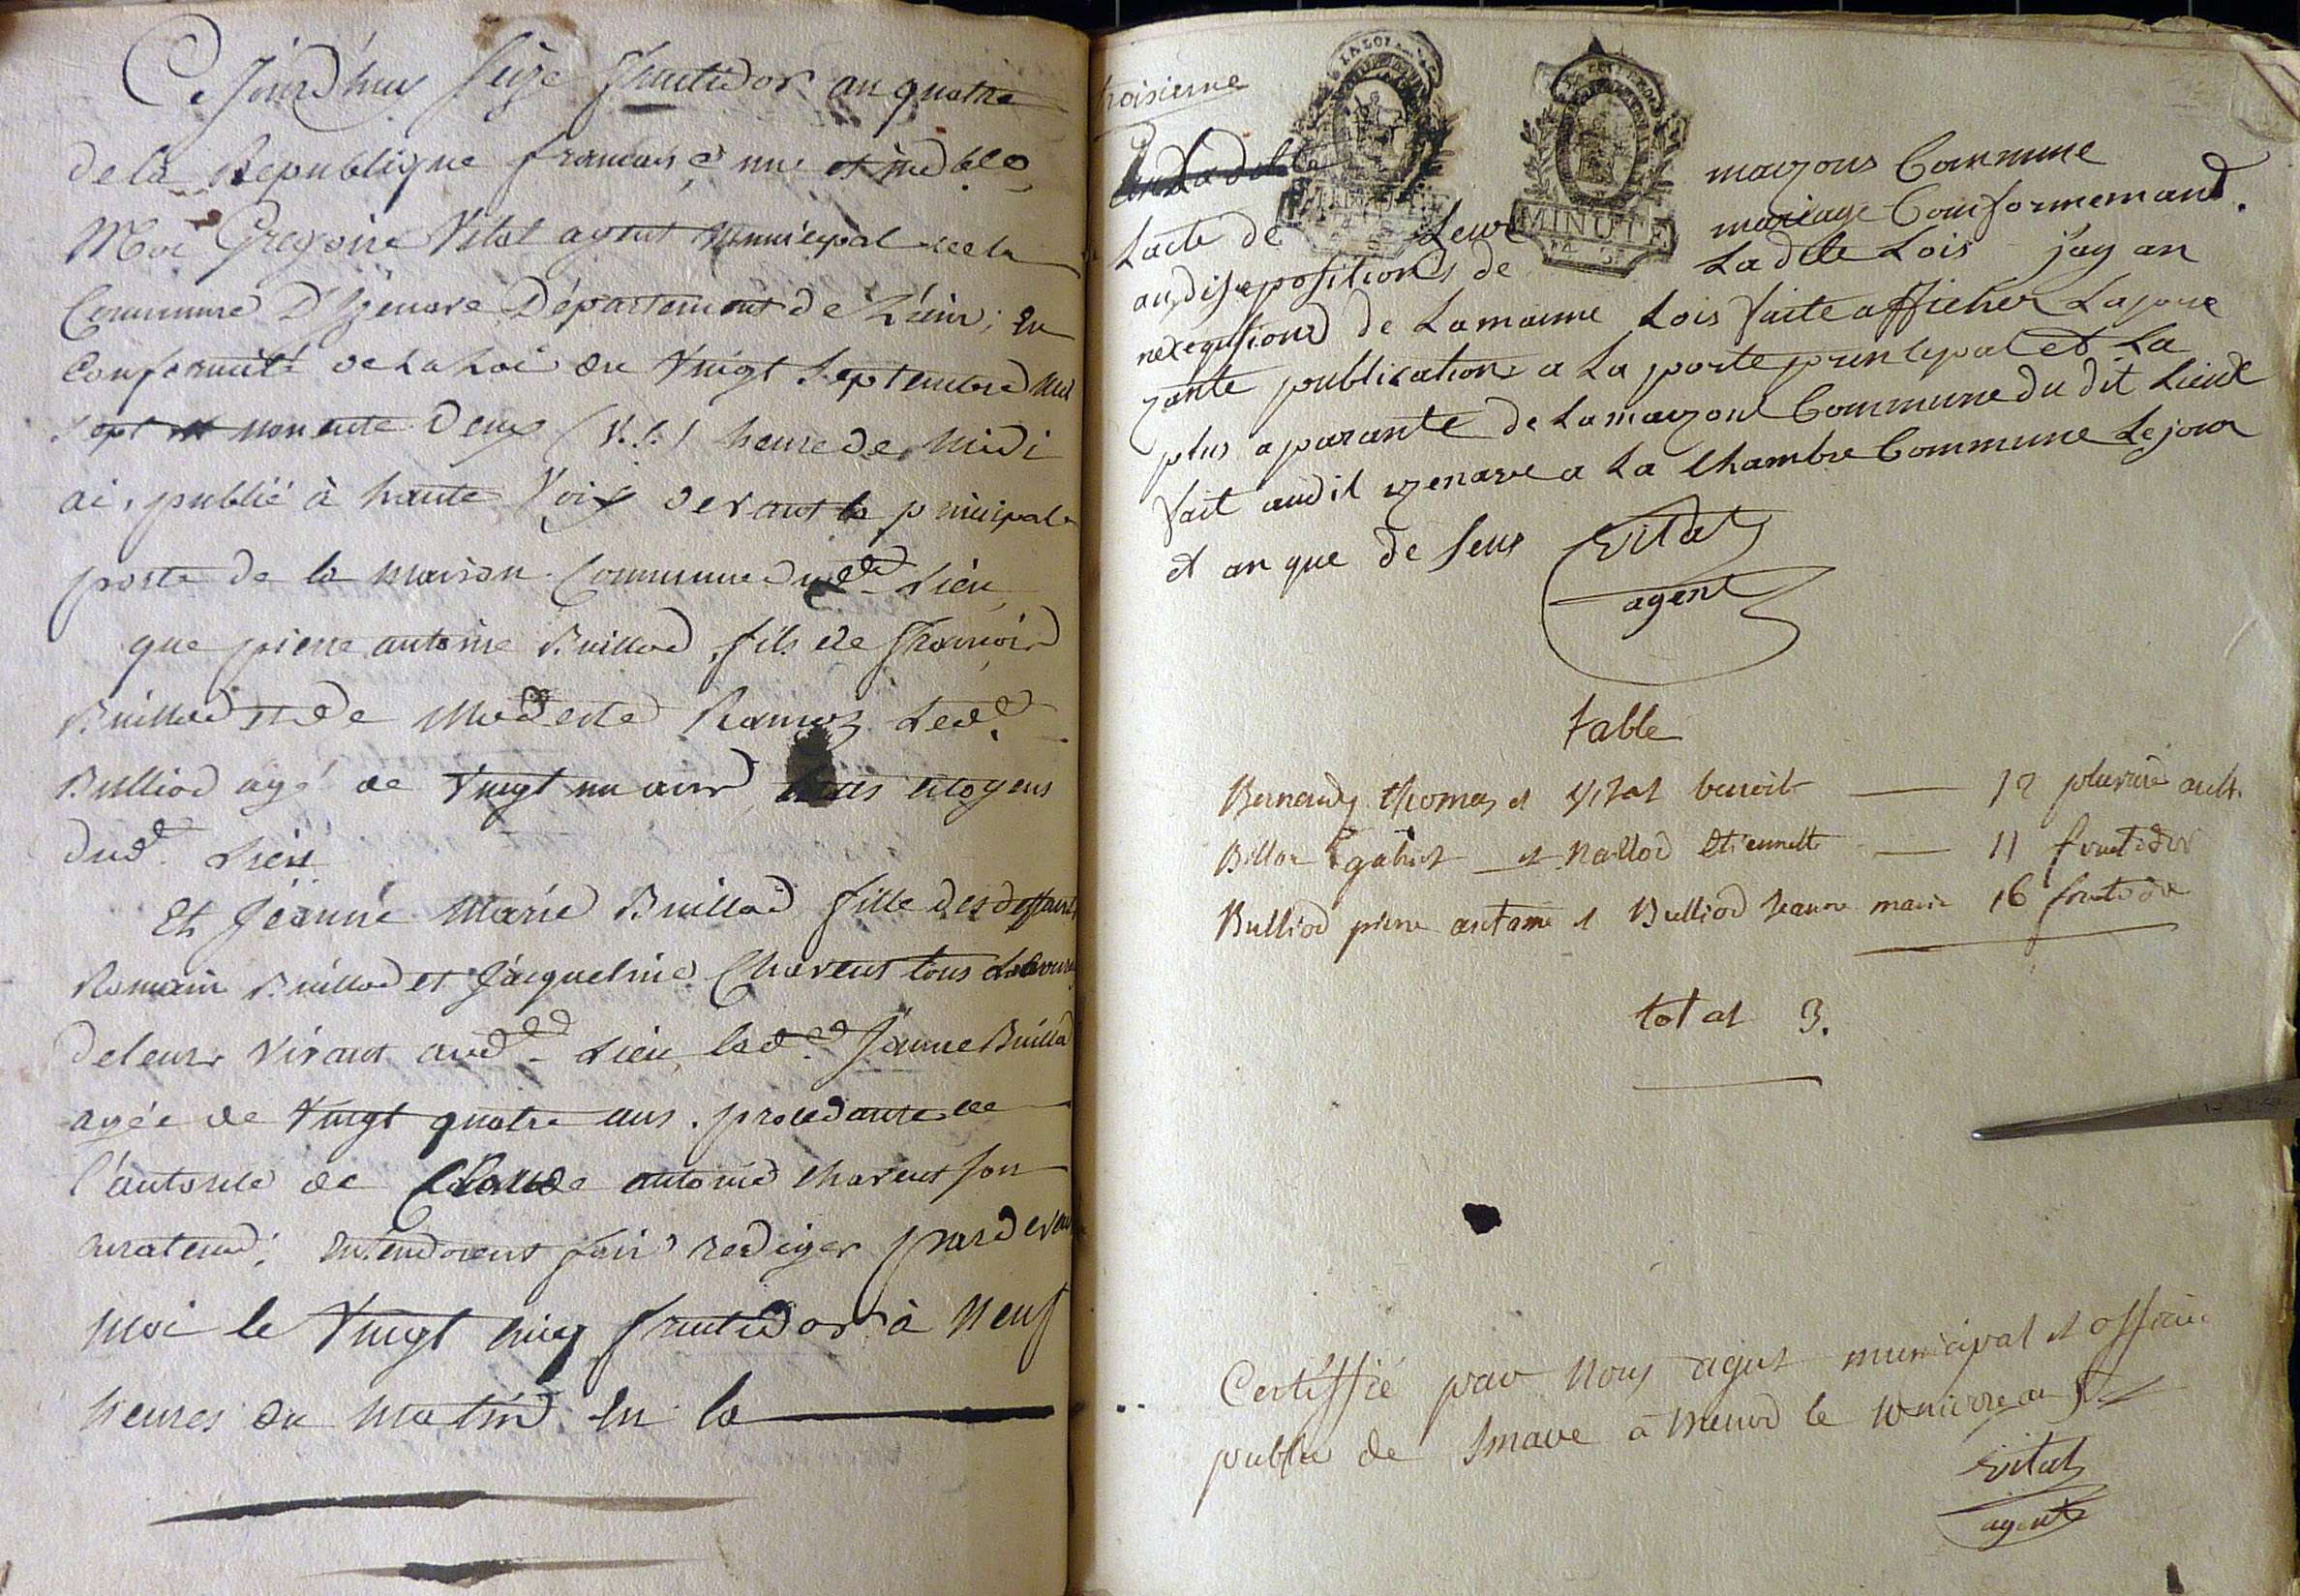 Ce Jourd'huy Seize fructidor an quatre
de la Republique francaise une et indble
Moi Gregoire Vital agent Municipal de la
Commune D'Izenave Département de L'ain, En
conformité de La Loi du Vingt Septembre mil
sept nonente Deux (V.S.) heure de Midi
ai publié à haute Voix devant la principale
porte de la maison Commune dud. Lieu
que pierre antoine Builliod fils de françois
Builliod et de Modeste Ramoz led.
Bulliod agé de Vingt un ans tous citoyens
dud. Lieu
Et Jeanne Marie Builliod fille des deffunts
Romain Builliod et Jacqueline Charvet tous
de leurs Vivant aud. Lieu, lad. Jeanne Builliod
agée de Vingt quatre ans. procedante de
l'autorité de Claude antoine Charvet son
curateur; entendoient faire rediger pardevant
moi le Vingt cinq fructidor à Neuf
heures du Matin En la
troisieme
mayzons Commune
Lacte de Leur mariage Conformemant
au dispositions de La dite Lois j'ay an
nexequsiond de La maime Lois faite afficher La pre
zante publication a La porte prinsipal et La
plus aparante de La mayzont Commune du dit Lieux
fait audit yzenave a La Chambre Commune Le jour
et an que de Sus Vital
agent
MINUTE
table
Bernardy thomas et Vital benoit — 12 pluviose
Billon gabriel et Nallod Etiennette — 11 fructidor
Bulliod pierre antoine et Bulliod Jeanne marie 16 fructidor
total 3.
Certiffié par Nous agent municipal et officier
public de le 10 nivose an 5
Vital
agent